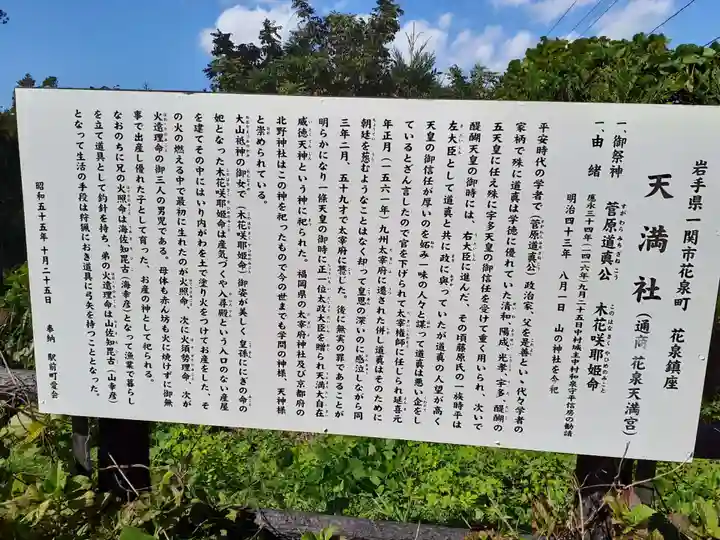 岩手県一関市花泉町 花泉鎮座
天満社(通商 花泉天満宮)
一、御祭神 菅原道真公 木花咲耶姫命
すがわらみちざねこう このはなさくやひめのみこと
一、由緒 応永三十四年(一四二六年)九月二十五日中村城主中村和泉守平信房の勧請
明治四十三年 八月一日 山の神社を合祀
平安時代の学者で(菅原道真公)政治家、父を是善といい代々学者の
家柄で殊に道真は学徳に優れていた清和、陽成、光孝、宇多、醍醐の
五天皇に仕え殊に宇多天皇の御信任を受けて重く用いられ、次いで
醍醐天皇の御時には、右大臣に進んだ、その頃藤原氏の一族時平は
左大臣として道真と共に政に與っていたが道真の人望が高く
天皇の御信任が厚いのを妬み一味の人々と謀って道真は悪い企をし
ているとざん言したので官を下げられて太宰権師に任じられ延喜元
年正月(一五六一年)九州太宰府に遷された併し道真はそのために
朝廷を怨むようなことはなく却って皇恩の深いのに感泣しながら同
三年二月、五十九才で太宰府に薨じた。後に無実の罪であることが
明らかになり一條天皇の御時に正一位太政大臣を贈られ天満大自在
威徳天神という神に祀られた。福岡県の太宰府神社及び京都府の
北野神社はこの神を祀ったもので今の世までも学問の神様 天神様
と崇められている。
大山祗神の御女で(木花咲耶姫命)御姿が美しく皇孫ににぎの命の
妃となった木花咲耶姫命は産気づくや入尋殿という入口のない産屋
を建てその中にはいり内がわを土で塗り火をつけてお産をした、そ
の火の燃える中で最初に生れたのが火照命、次に火須勢理命、次が
火遠理命の御三人の男児である。母体も赤ん坊も火に焼けずに御無
事で出産し優れた子として育った、お産の神として祀られる。
なおのちに兄の火照命は海佐知毘古(海幸彦)となって漁業で暮し
を立て道具として釣針を持ち、弟の火遠理命は山佐知毘古(山幸彦)
となって生活の手段は狩猟におき道具に弓矢を持つこととなった。
昭和五十五年十月二十五日 奉納 駅前町愛会